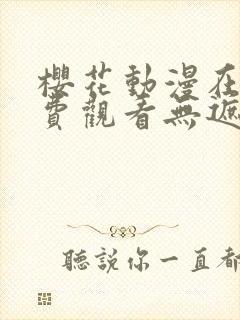 櫻花動漫在
費觀看無遮
聽說你一直都